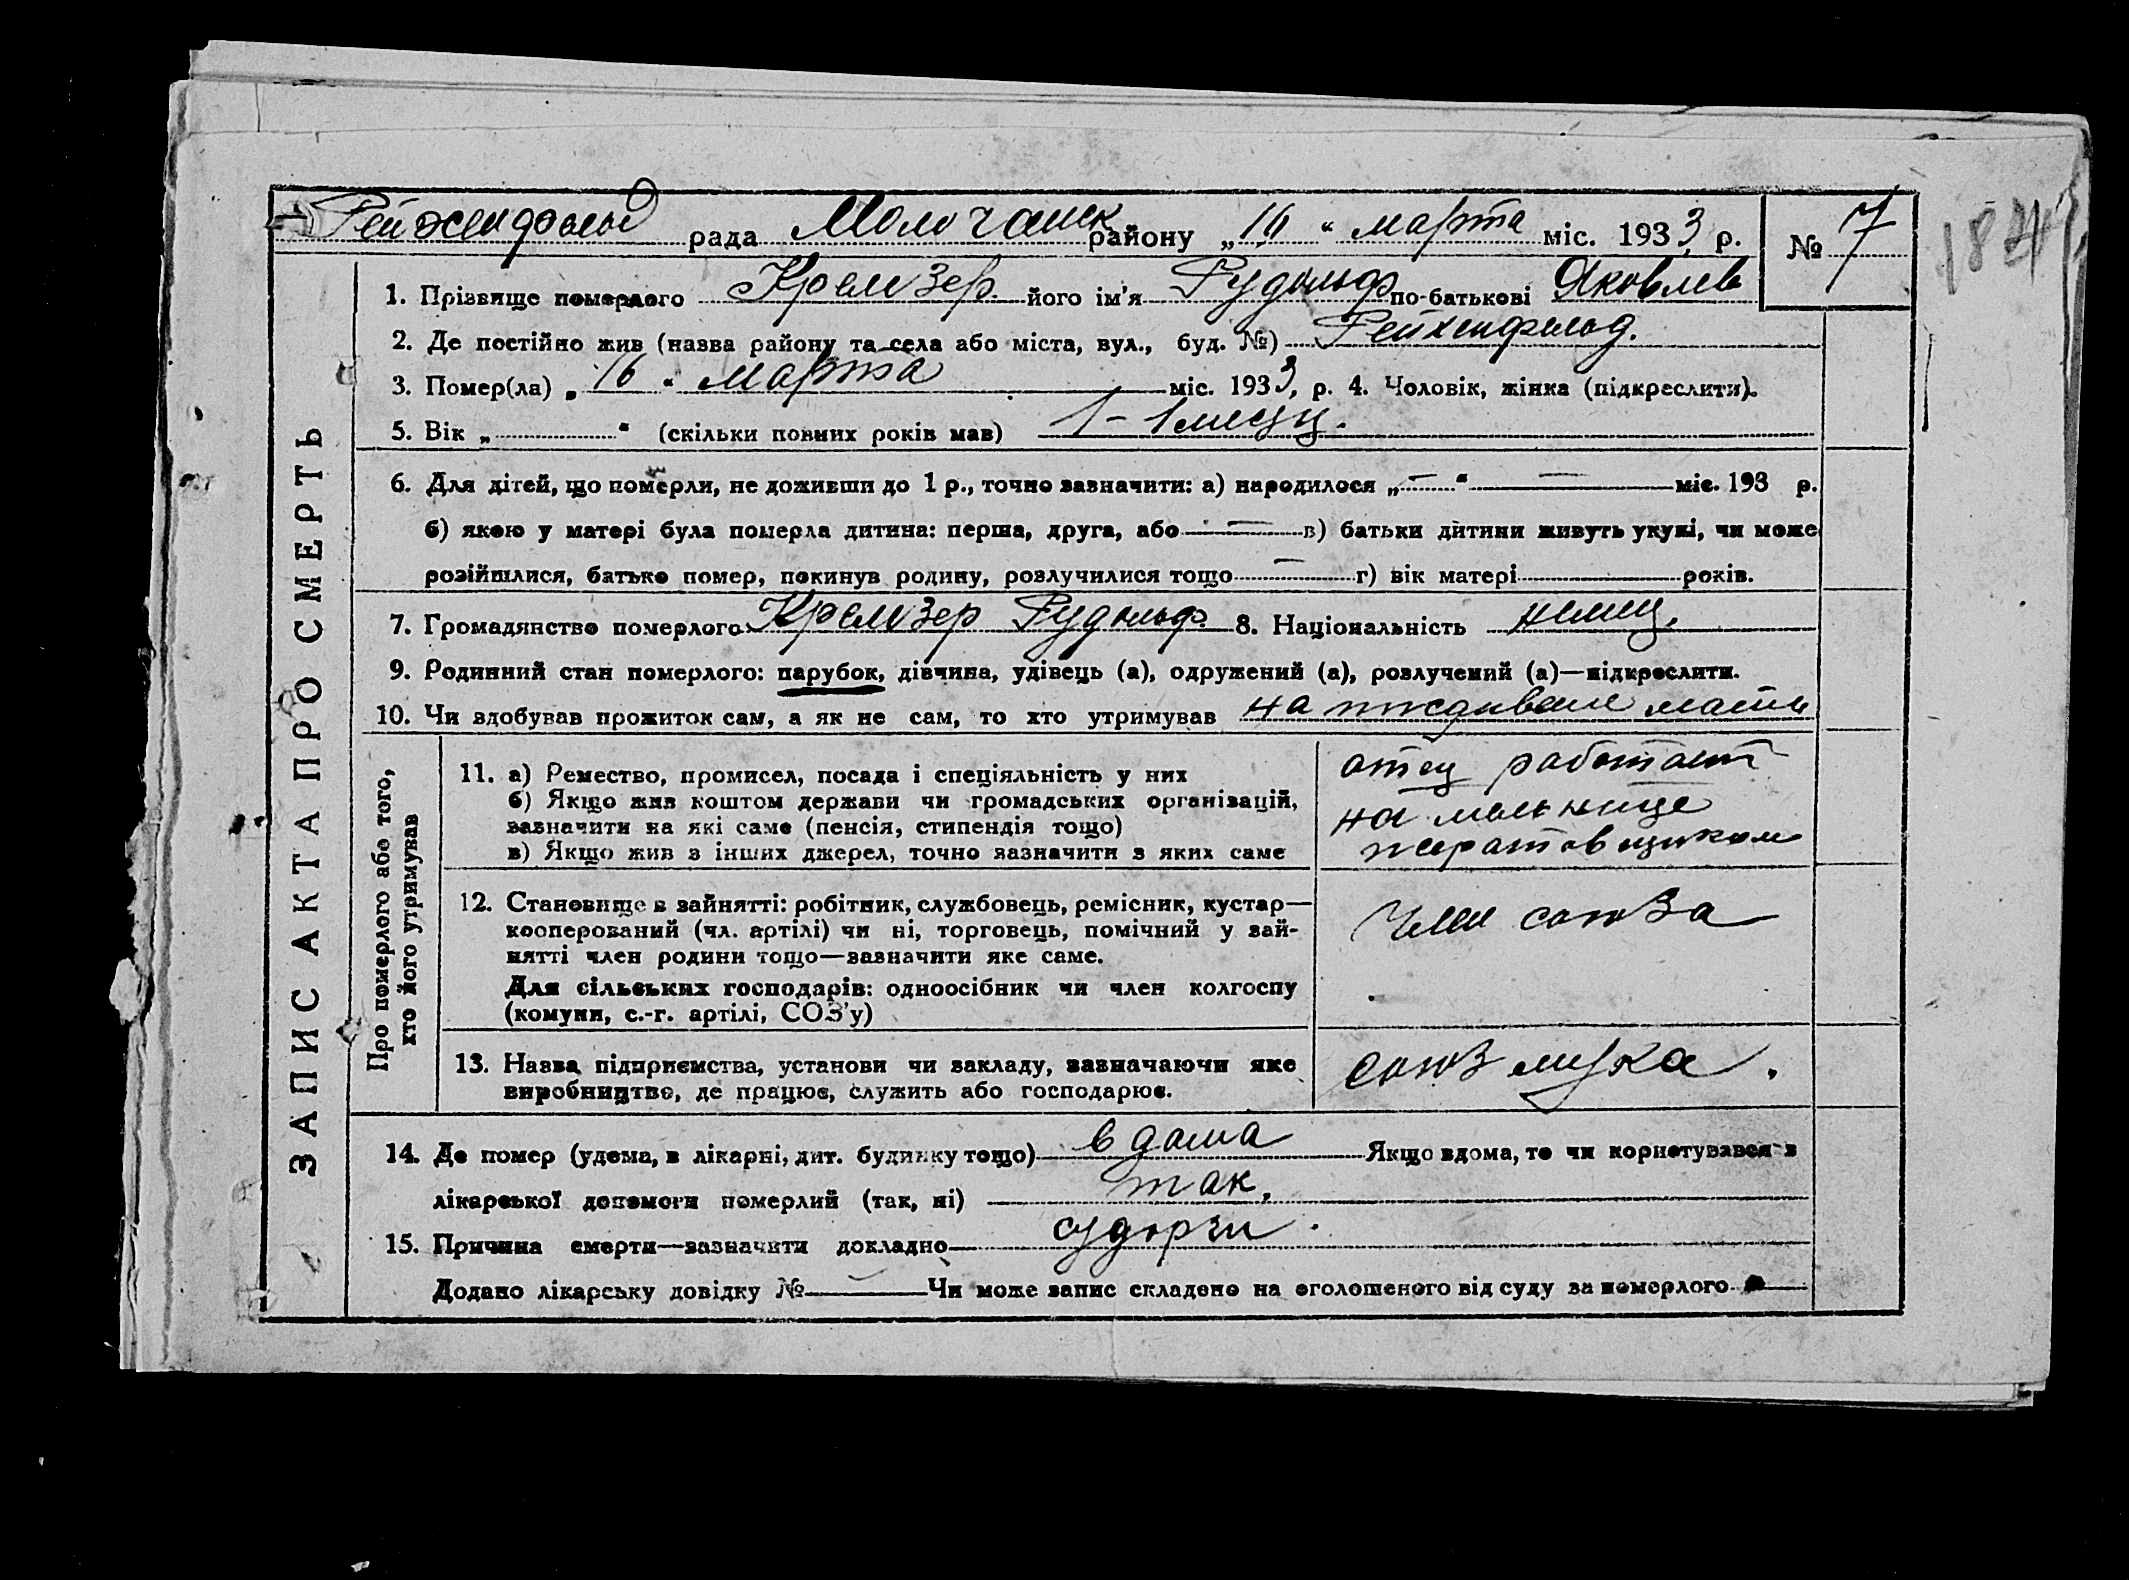 Рейхенфельд рада Молочанск району „16“ марта міс. 1933 р. № 7
184
1. Прізвище померлого Кремзер його ім'я Рудольф по-батькові Яковлев
2. Де постійно жив (назва району та села або міста, вул., буд. №) Рейхенфельд.
3. Помер(ла) „16“ марта міс. 1933, р. 4. Чоловік, жінка (підкреслити).
5. Вік „ “ (скільки повних років мав) 1 – 1 месяц.
6. Для дітей, що померли, не доживши до 1 р., точно зазначити: а) народилося „—“ — міс. 193 р.
б) якою у матері була померла дитина: перша, друга, або — в) батьки дитини живуть укупі, чи може
розійшлися, батько помер, покинув родину, розлучилися тощо — г) вік матері років.
7. Громадянство померлого Кремзер Рудольф 8. Національність немец.
9. Родинний стан померлого: парубок, дівчина, удівець (а), одружений (а), розлучений (а)—підкреслити.
10. Чи здобував прожиток сам, а як не сам, то хто утримував на иждивение мати
ЗАПИС АКТА ПРО СМЕРТЬ
Про померлого або того,
хто його утримував
11. а) Ремество, промисел, посада і спеціяльність у них
б) Якщо жив коштом держави чи громадських організацій,
зазначити на які саме (пенсія, стипендія тощо)
в) Якщо жив з інших джерел, точно зазначити з яких саме
отец работает
на мельнице
12. Становище в зайнятті: робітник, службовець, ремісник, кустар—
кооперований (чл. артілі) чи ні, торговець, помічний у зай-
нятті член родини тощо—зазначити яке саме.
Для сільських господарів: одноосібник чи член колгоспу
(комуни, с.-г. артілі, СОЗ'у)
член союза
13. Назва підприємства, установи чи закладу, зазначаючи яке
виробництво, де працює, служить або господарює.
союз мука.
14. Де помер (удома, в лікарні, дит. будинку тощо) в дома Якщо вдома, то чи користувався з
лікарської допомоги померлий (так, ні) так.
15. Причина смерти—зазначити докладно судорги.
Додано лікарську довідку № — Чи може запис складено на оголошеного від суду за померлого